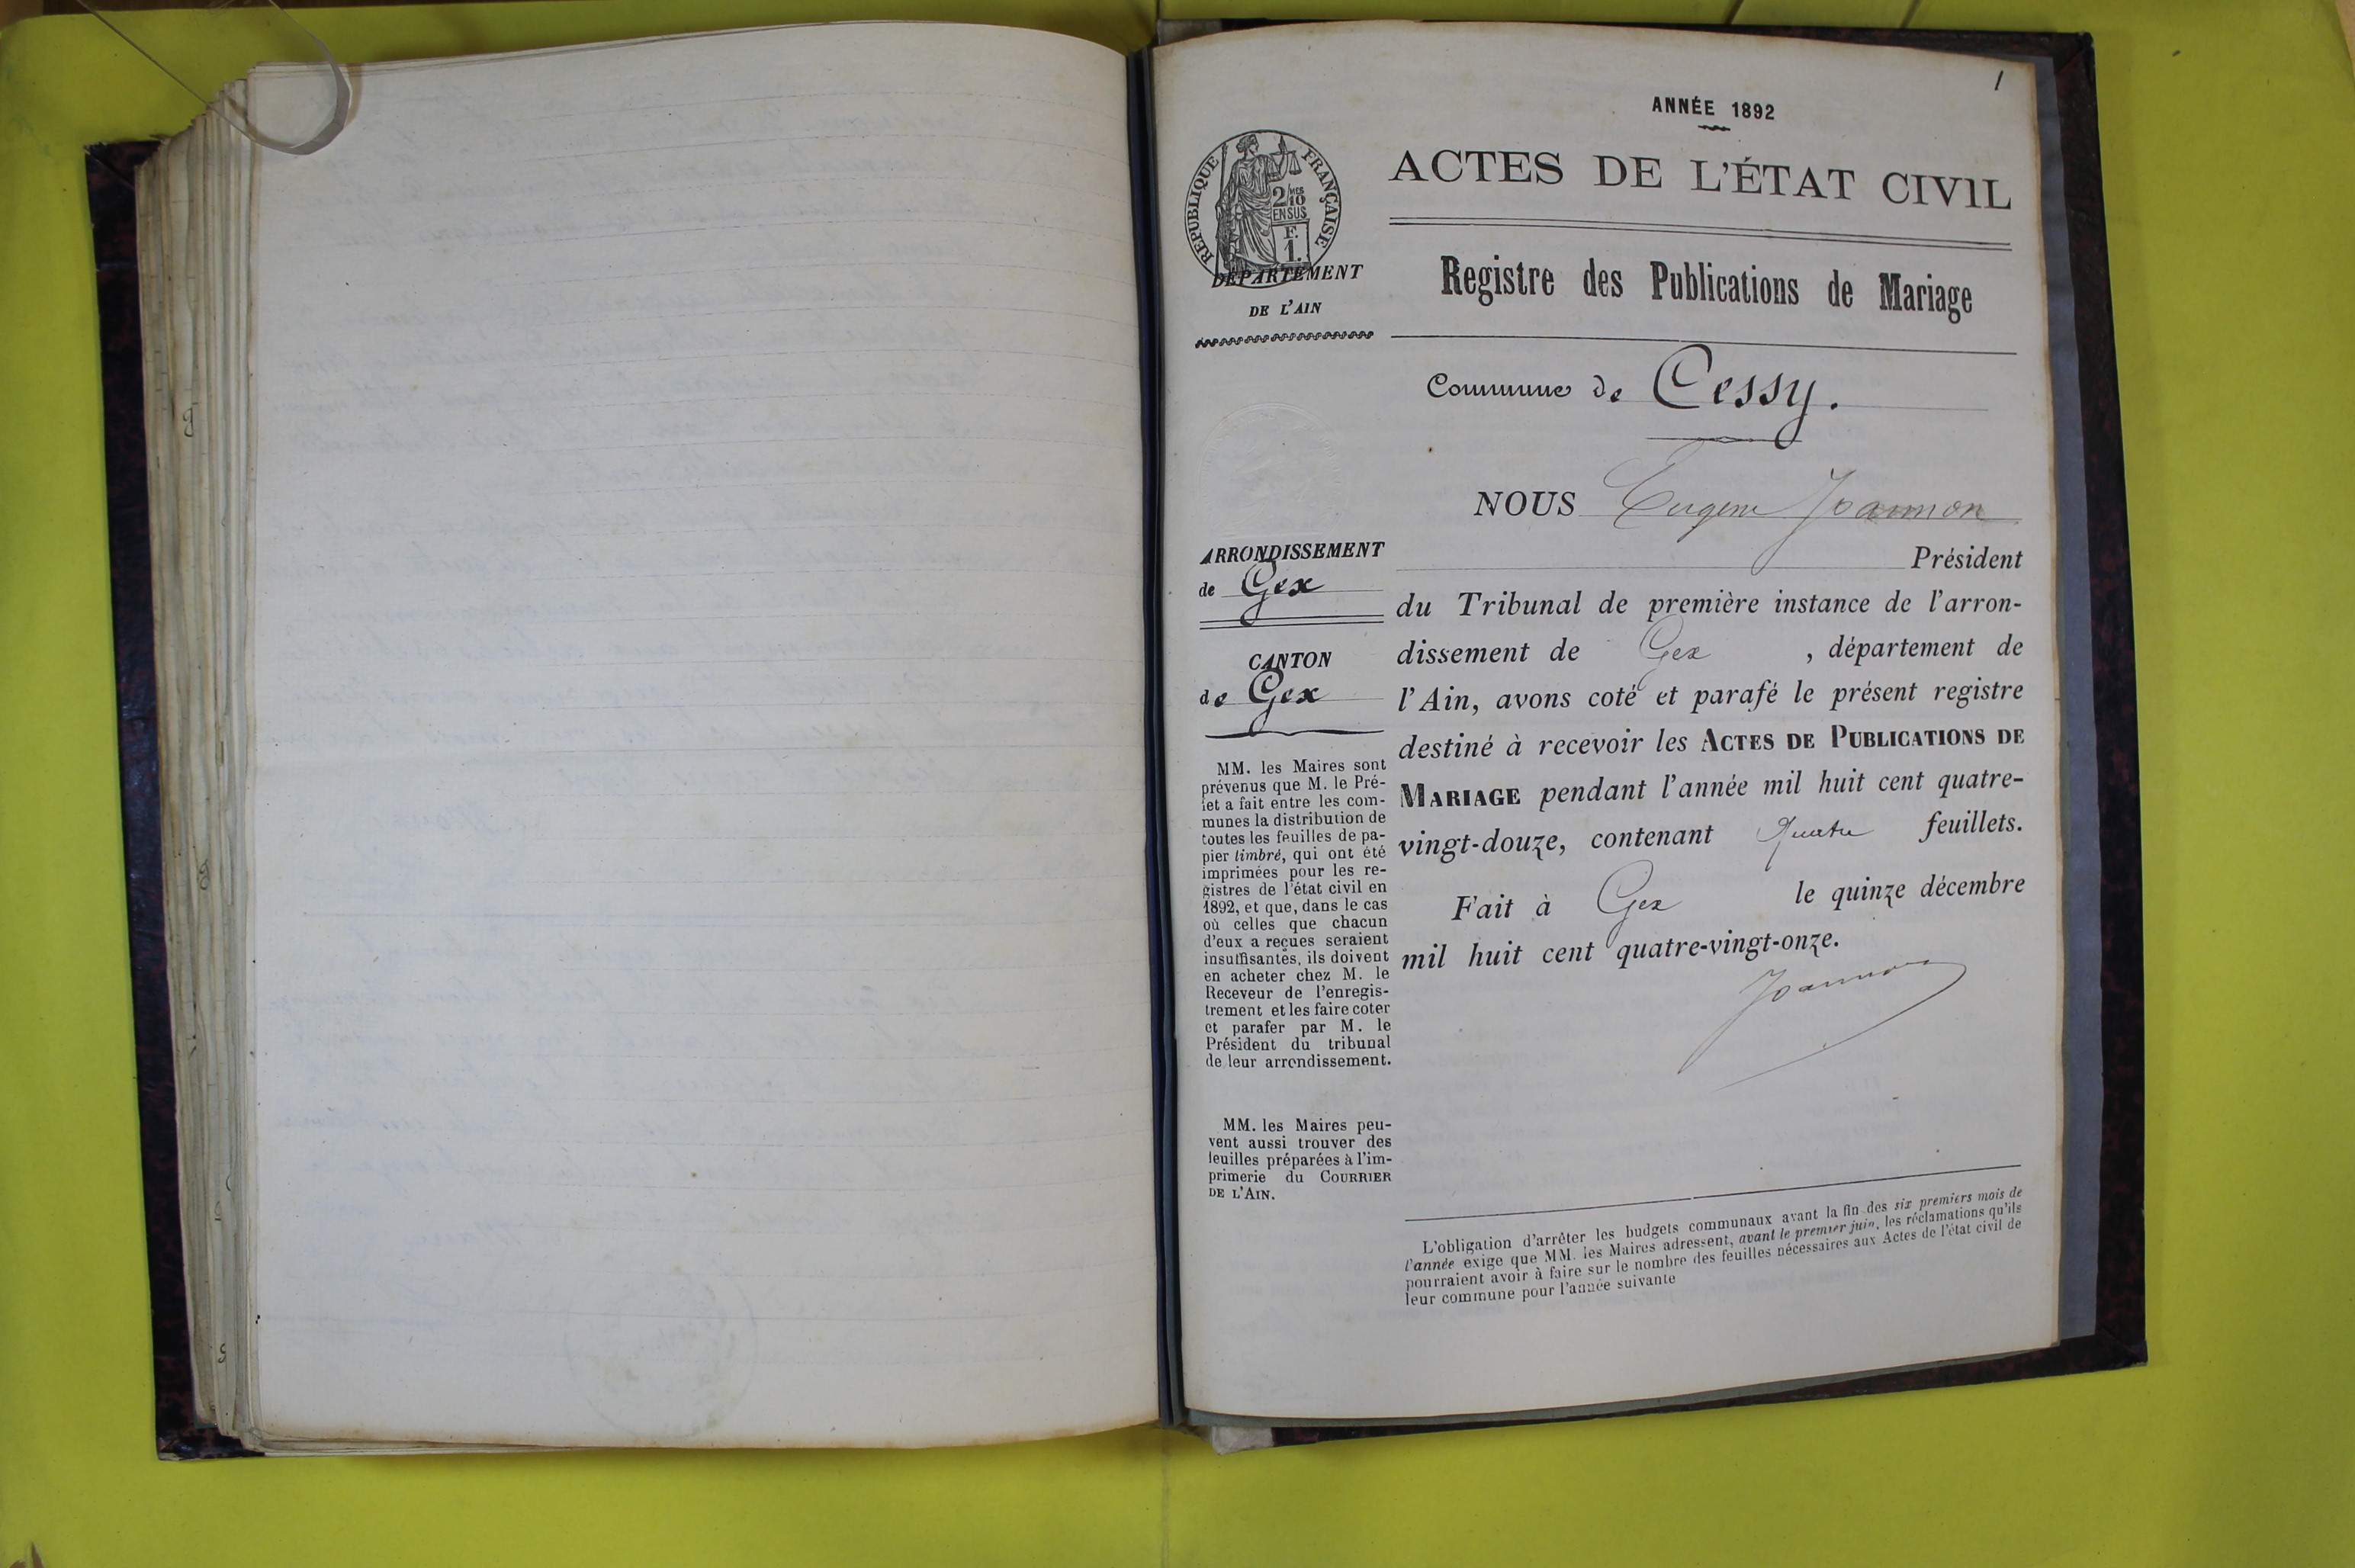 1
ANNÉE 1892
RÉPUBLIQUE FRANÇAISE
2/10 MES
EN SUS
F.
1.
DÉPARTEMENT
DE L'AIN
ACTES DE L'ÉTAT CIVIL
Registre des Publications de Mariage
Commune de Cessy.
NOUS Eugène Joannon
Président
du Tribunal de première instance de l'arron-
dissement de Gex , département de
l'Ain, avons coté et parafé le présent registre
destiné à recevoir les ACTES DE PUBLICATIONS DE
MARIAGE pendant l'année mil huit cent quatre-
vingt-douze, contenant quatre feuillets.
Fait à Gex le quinze décembre
mil huit cent quatre-vingt-onze.
Joannon
ARRONDISSEMENT
de Gex
CANTON
de Gex
MM. les Maires sont
prévenus que M. le Pré-
fet a fait entre les com-
munes la distribution de
toutes les feuilles de pa-
pier timbré, qui ont été
imprimées pour les re-
gistres de l'état civil en
1892, et que, dans le cas
où celles que chacun
d'eux a reçues seraient
insuffisantes, ils doivent
en acheter chez M. le
Receveur de l'enregis-
trement et les faire coter
et parafer par M. le
Président du tribunal
de leur arrondissement.
MM. les Maires peu-
vent aussi trouver des
feuilles préparées à l'im-
primerie du COURRIER
DE L'AIN.
L'obligation d'arrêter les budgets communaux avant la fin des six premiers mois de
l'année exige que MM. les Maires adressent, avant le premier juin, les réclamations qu'ils
pourraient avoir à faire sur le nombre des feuilles nécessaires aux Actes de l'état civil de
leur commune pour l'année suivante